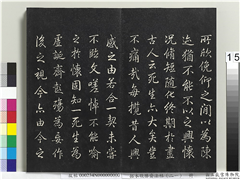 所欣俛仰之間以為陳
迹猶不能不以之興懷
況脩短隨化終期於盡
古人云死生亦大矣豈
不痛哉每攬昔人興
感之由若合一契未嘗
不臨文嗟悼不能喻
之於懷固知一死生為
虛誕齊彭殤為妄作
後之視今亦由今之
15